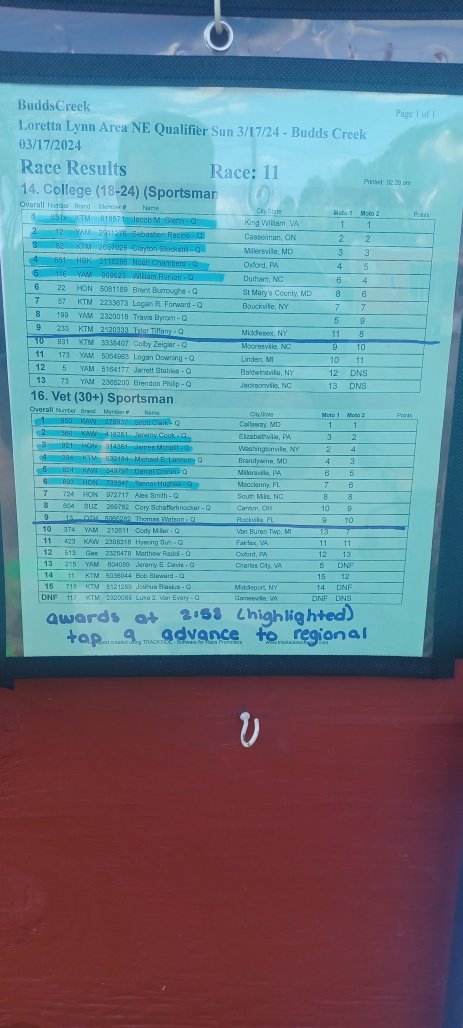 BuddsCreek
Page 1 of 1
Loretta Lynn Area NE Qualifier Sun 3/17/24 - Budds Creek
03/17/2024
Race Results Race: 11
Printed: 02:28 pm
14. College (18-24) (Sportsman
Overall Number Brand Member # Name City,State Moto 1 Moto 2 Points
1 KTM Jacob M. Glenn - Q King William, VA 1 1
2 12 YAM Sebastien Racine - Q Casselman, ON 2 2
3 82 KTM 2657028 Clayton Stockstill - Q Millersville, MD 3 3
4 HSK Noah Chambers - Q Oxford, PA 4 5
5 YAM William Runion - Q Durham, NC 6 4
6 22 HON 5081189 Brent Burroughs - Q St Mary's County, MD 8 6
7 57 KTM 2233673 Logan R. Forward - Q Bouckville, NY 7 7
8 199 YAM 2320018 Travis Byrom - Q 5 9
9 233 KTM 2120333 Tyler Tiffany - Q Middlesex, NY 11 8
10 831 KTM 3338407 Colby Zeigler - Q Mooresville, NC 9 10
11 173 YAM 5064983 Logan Downing - Q Linden, MI 10 11
12 5 YAM 5164177 Jarrett Stables - Q Baldwinsville, NY 12 DNS
13 73 YAM 2365200 Brendon Philip - Q Jacksonville, NC 13 DNS
16. Vet (30+) Sportsman
Overall Number Brand Member # Name City,State Moto 1 Moto 2 Points
1 KAW Scott Clark - Q Callaway, MD 1 1
2 KAW Jeremy Cook - Q Elizabethville, PA 3 2
3 921 HON James McNeill - Q Washingtonville, NY 2 4
4 394 KTM 532184 Michael E. Lennem - Q Brandywine, MD 4 3
5 824 KAW Daniel Cronin - Q Millersville, PA 6 5
6 893 HON Tanner Hughes - Q Macclenny, FL 7 6
7 724 HON 972717 Alex Smith - Q South Mills, NC 8 8
8 604 SUZ 269782 Cory Schafferknocker - Q Canton, OH 10 9
9 13 Thomas Watson - Q Rockville, FL 9 10
10 374 YAM 212611 Cody Miller - Q Van Buren Twp, MI 13 7
11 423 KAW 2308318 Hyeong Suh - Q Fairfax, VA 11 11
12 513 Gas 2325478 Matthew Raddi - Q Oxford, PA 12 13
13 215 YAM 604089 Jeremy E. Davis - Q Charles City, VA 5 DNF
14 11 KTM 5036044 Bob Steward - Q 15 12
15 713 KTM 5121259 Joshua Blasius - Q Middleport, NY 14 DNF
DNF 117 KTM 2320085 Luke Z. Van Every - Q Gainesville, VA DNF DNS
awards at 2:58 (highlighted)
top 9 advance to regional
Report created using TRACKSIDE - Software for Race Promoters